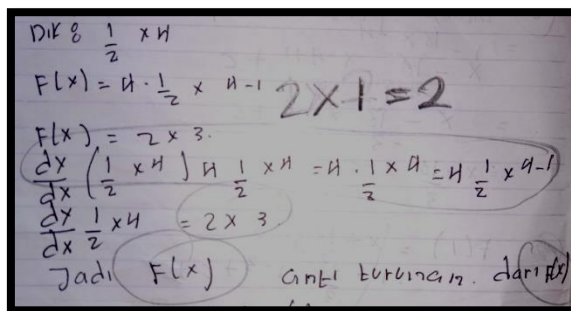 Dik : 1/2 x 4
F(x) = 4 · 1/2 x 4-1
2 x 1 = 2
F(x) = 2 x 3.
dx/dx (1/2 x 4) 4 1/2 x 4 = 4 · 1/2 x 4 = 4 1/2 x 4-1
dx/dx 1/2 x 4 = 2 x 3
Jadi F(x) anti turunan. dari F(x)